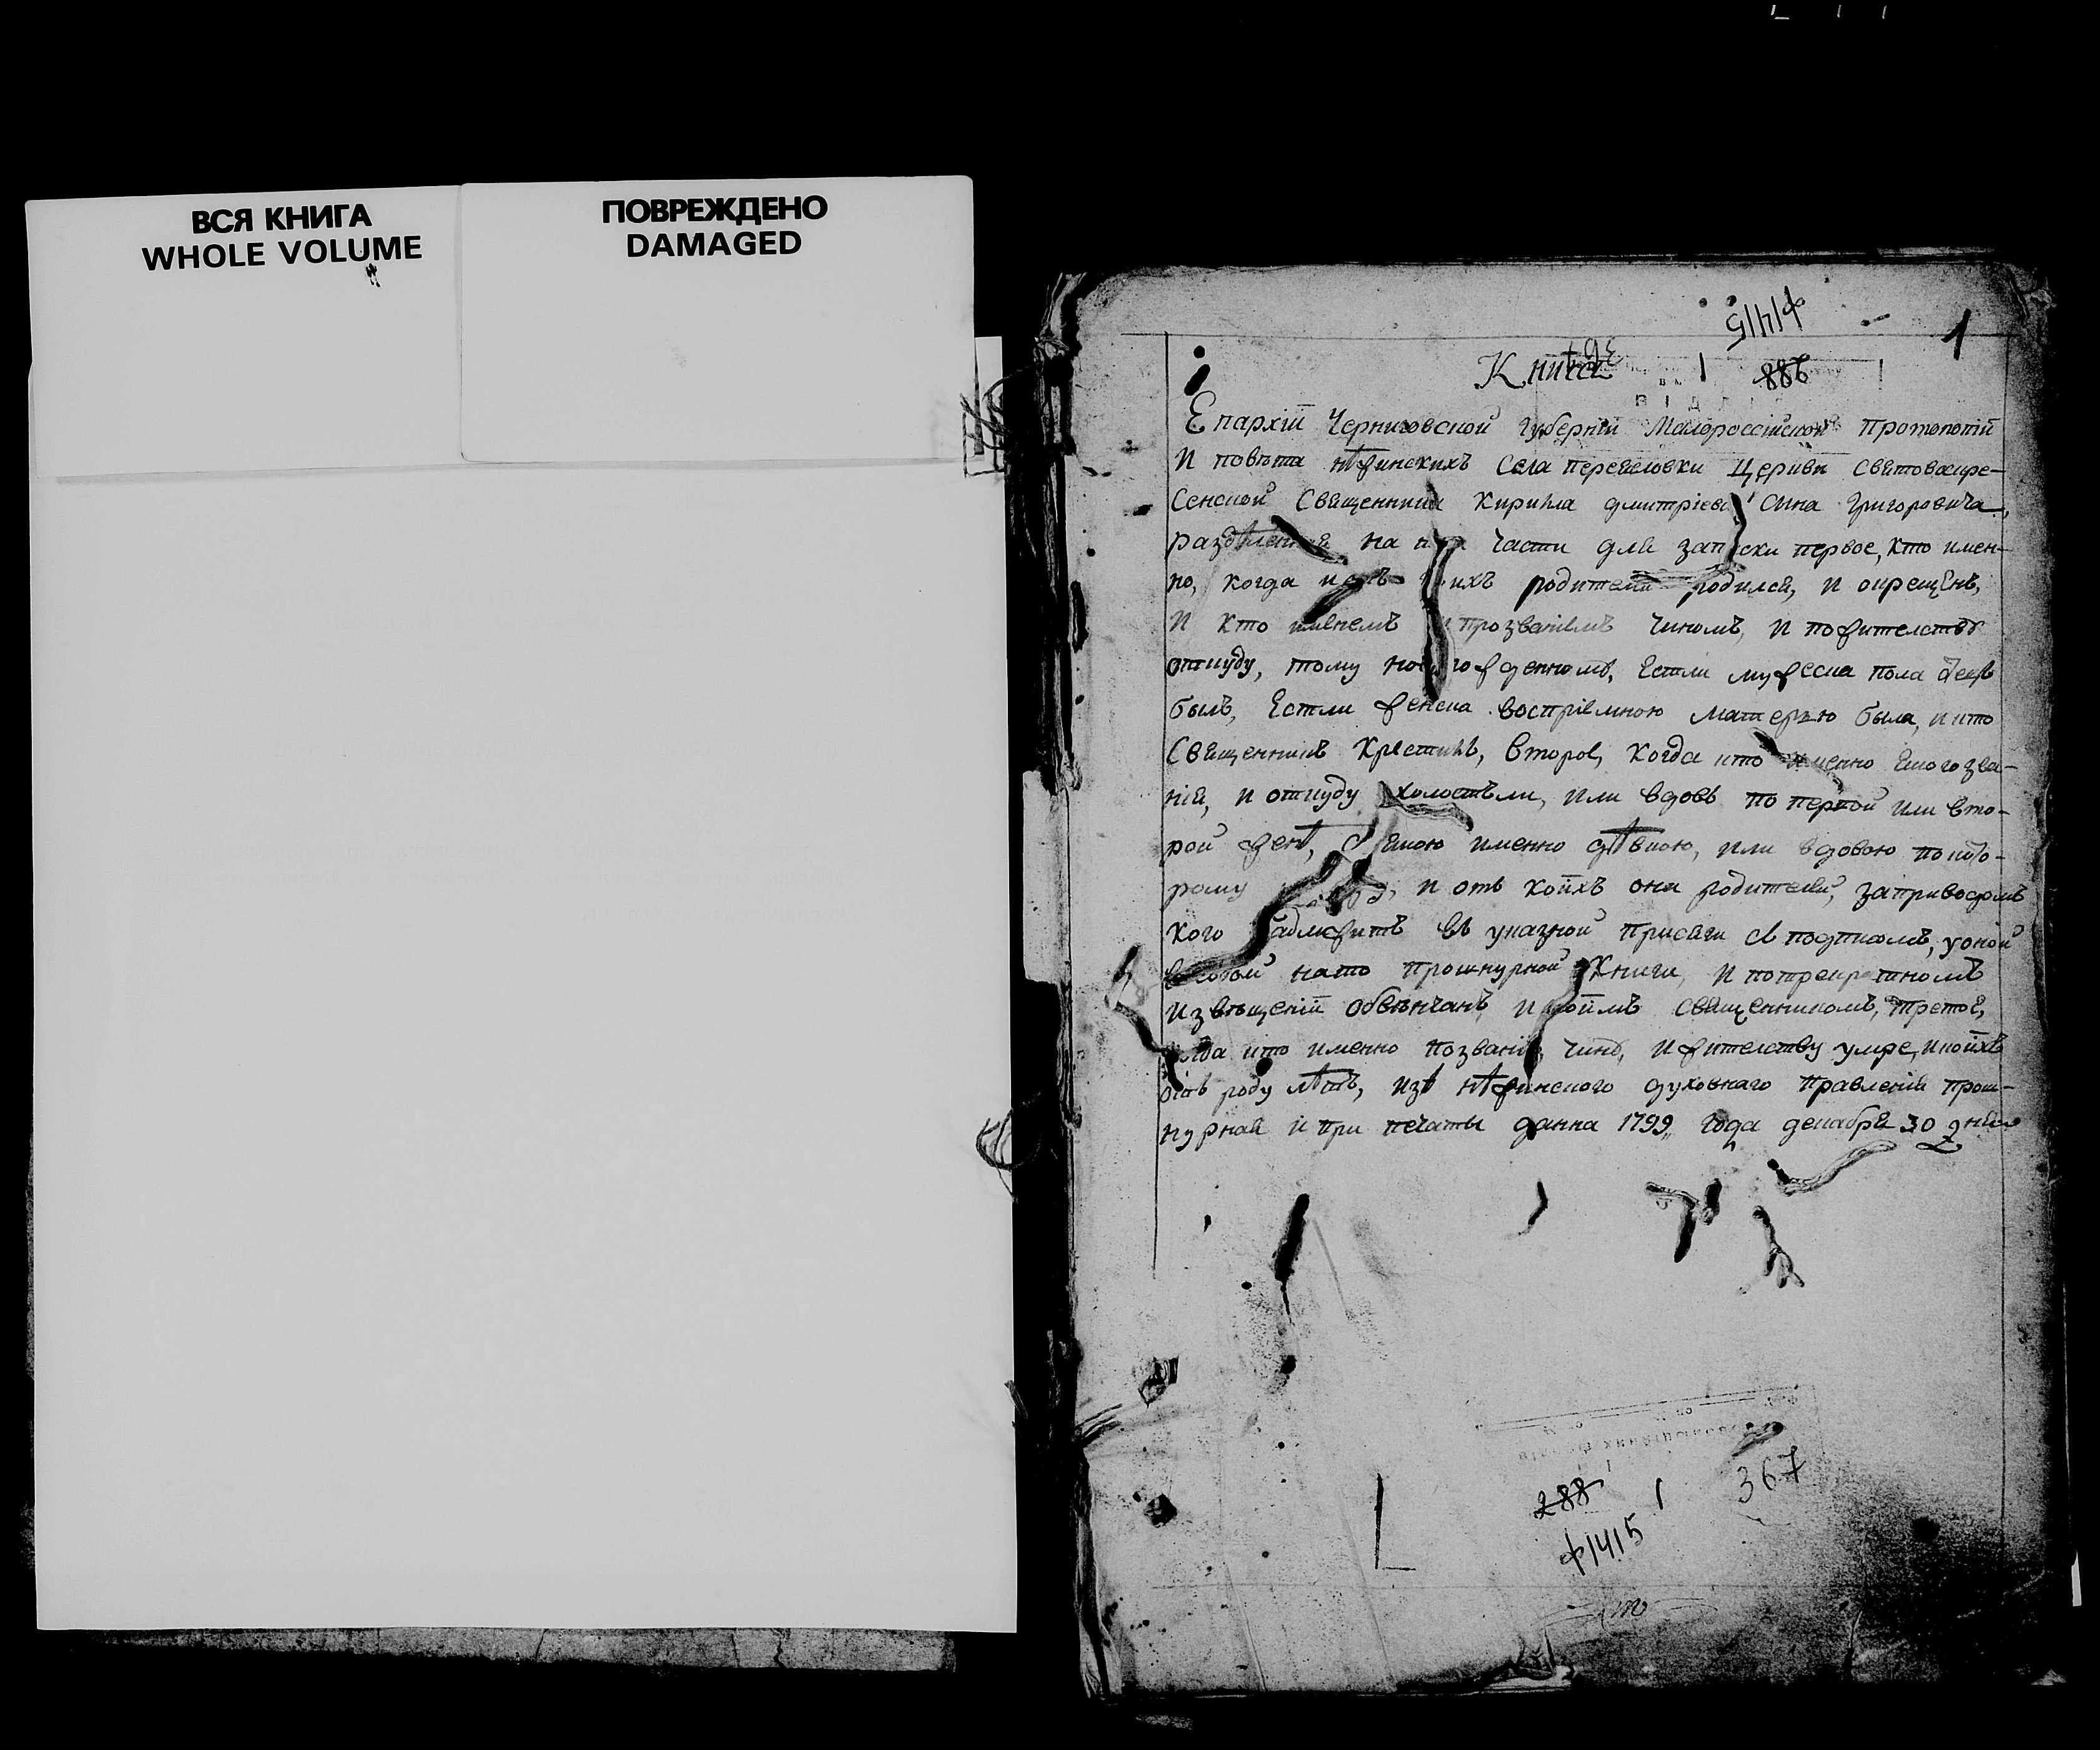 ВСЯ КНИГА
WHOLE VOLUME
ПОВРЕЖДЕНО
DAMAGED
ф1415
1
367
1
288
Книга
Епархіи Черниговской Губерніи Малороссійской Протопопіи
И повѣта нѣжинскихъ Села переясловки Церкви Святовоскре-
сенской Священника Кирила дмитріева Сина Григоровича,
раздѣленная на части для записки первое, кто имен-
но, когда родителей родился, и окрещенъ,
И кто именемъ и прозваніемъ Чиномъ, и пожителству
откуду, тому новорожденномъ, Естли мужеска пола
былъ, Естли женска восприемною матерью была, и кто
Священникъ Крестилъ, второе, Когда кто именно якого зва-
нія, и откуду холостъ ли, или вдовъ по первой или вто-
рой женѣ, с якою именно дѣвкою, или вдовою по кото-
рому и отъ коихъ она родителей, заприводомъ
Кого въ указной присяги съ подписомъ, у оной
на то прошнурной Книги, и потрекратномъ
извѣщеніи обвѣнчанъ, и коимъ священникомъ, третое,
кто именно позванію, чину, и жителству умре, и коихъ
отъ роду лѣтъ, изъ нѣжинского духовнаго правленія прош-
нурная и при печаты данна 1799 года декабря 30 дня
288 1 367
ф1415